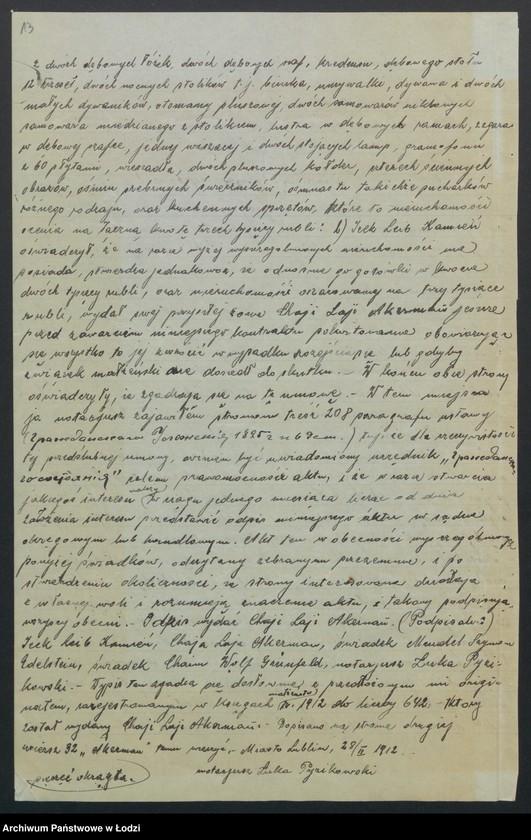 13
z dwóch dębowych łóżek, dwóch dębowych szaf, kredensu, dębowego stołu
12 krzeseł, dwóch nocnych stolików t.j. biurka, umywalki, dywana i dwóch
małych dywaników, otomany pluszowej, dwóch samowarów niklowych
samowara miedzianego z stolikiem, lustra w dębowych ramach, zegara
w dębowej szafce, jednej wiszącej i dwóch stojących lamp, gramofonu
z 60 płytami, wieszadła, dwóch pluszowych kołder, czterech ściennych
obrazów, ośmiu srebrnych świeczników, osiemnastu takichże pucharków
różnego rodzaju, oraz kuchennych sprzętów, które to nieruchomości
ocenia na łączną kwotę trzech tysięcy rubli: b) Icek Leib Kamień
oświadczył, że na razie wyżej wyszczególnionych nieruchomości nie
posiada, stwierdza jednakowoż, że odnośnie do gotówki w kwocie
dwóch tysięcy rubli, oraz nieruchomości oszacowaną na trzy tysiące
rubli, wydał swej przyszłej żonie Chaji Laji Akermań jeszcze
przed zawarciem niniejszego kontraktu
się wszystko to jej zwrócić w wypadku rozejścia się lub gdyby
związek małżeński nie doszedł do skutku. – W końcu obie strony
oświadczyły, że zgadzają się na tę umowę. – W tem miejscu
ja notarjusz zajawiłem stronom treść 208 paragrafu ustawy
tej przedślubnej umowy, winien być uwiadomiony urzędnik
celem prawomocności aktu, i że w razie otwarcia
jakiegoś interesu należy w ciągu jednego miesiąca licząc od dnia
założenia interesu przedstawić odpis niniejszego aktu w sądzie
okręgowym lub handlowym. Akt ten w obecności wyszczególnionych
poniżej świadków, odczytany zebranym przezemnie, i po
stwierdzeniu okoliczności, że strony interesowane działają
z własnej woli i rozumieją znaczenie aktu, i takowy podpisują
wszyscy obecni. – Odpis wydać Chaji Laji Akermań. (Podpisali:)
Icek Leib Kamień, Chaja Laja Akerman, świadek Mendel Szymon
Edelstein, świadek Chaim Wolf Grünfeld, notarjusz Luka Pyzi-
kowski. – Wypis ten zgadza się dosłownie z przedłożonym mi orygi-
nałem, zarejestrowanym w księgach 1912 do liczby 642. – Który
został wydany Chaji Laji Akermań. – Dopisano na stronie drugiej
wiersz 32 „Akerman" Miasto Lublin, 28/II 1912
pieczęć okrągła. notarjusz Luka Pyzikowski
Archiwum Państwowe w Łodzi